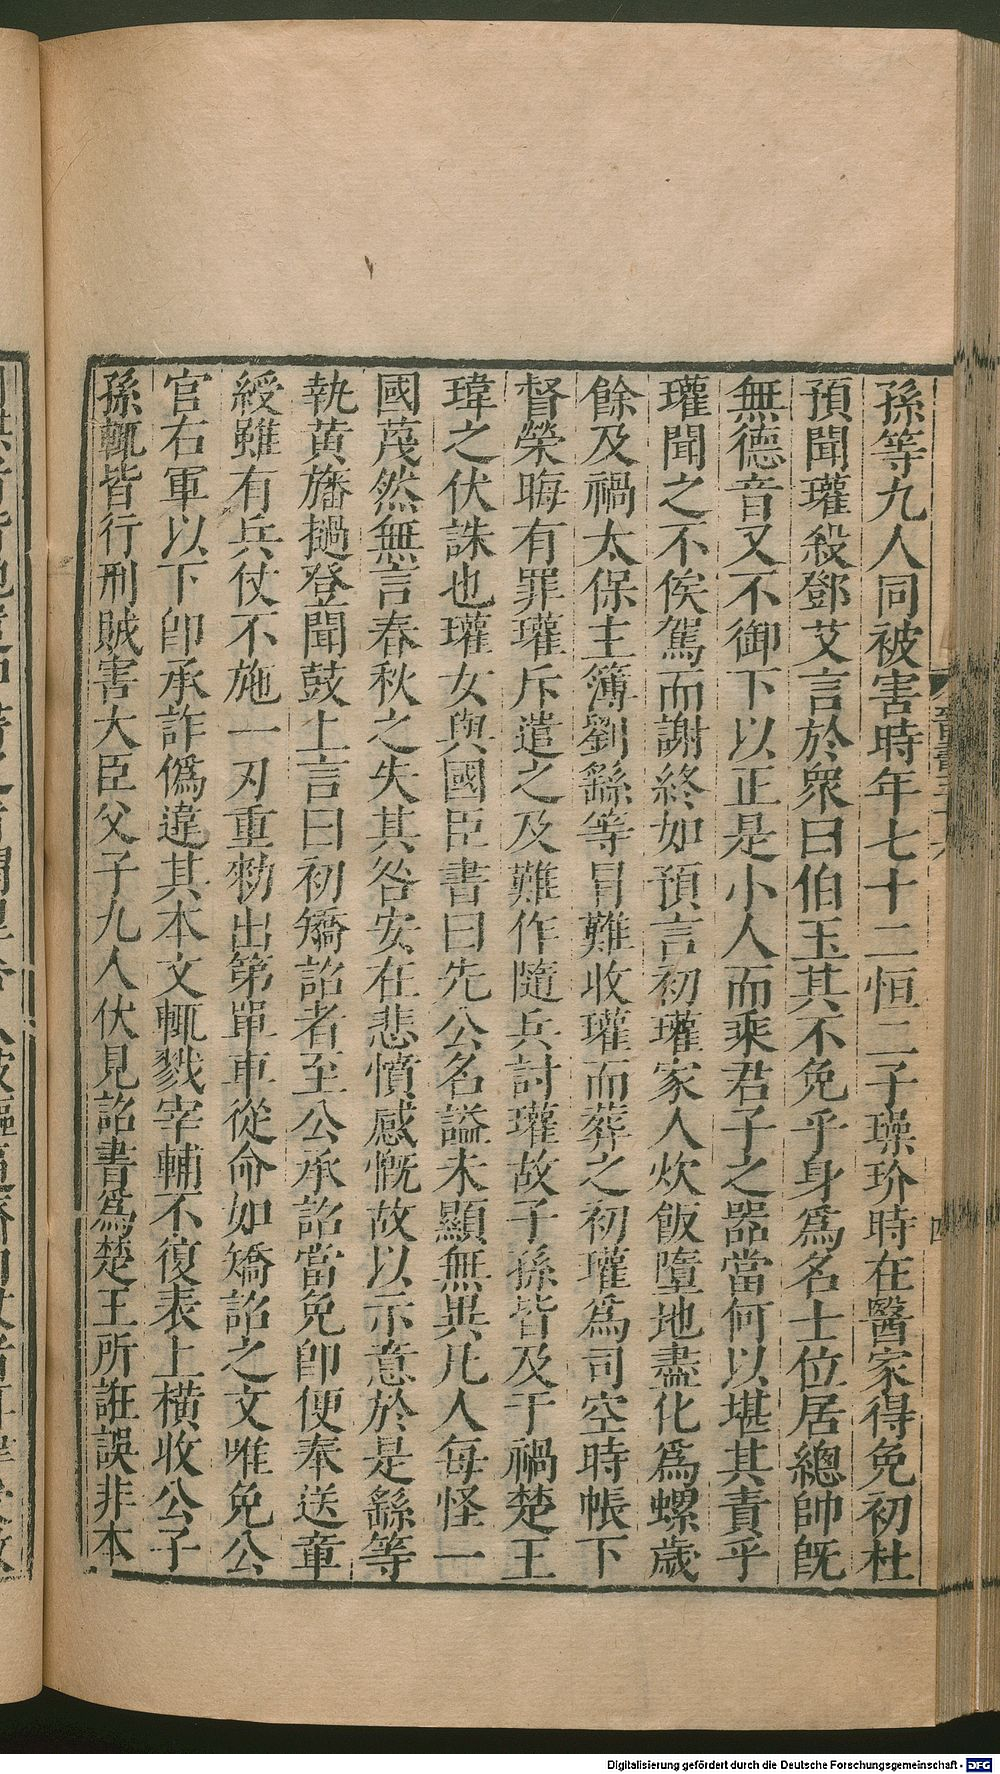 孫等九人同被害時年七十二恒二子璪玠時在醫家得免初杜
預聞瓘殺鄧艾言於衆曰伯玉其不免乎身爲名士位居總帥旣
無德音又不御下以正是小人而乘君子之器當何以堪其責乎
瓘聞之不俟駕而謝終如預言初瓘家人炊飯墮地盡化爲螺歲
餘及禍太保主簿劉繇等冒難收瓘而葬之初瓘爲司空時帳下
督榮晦有罪瓘斥遣之及難作隨兵討瓘故子孫皆及于禍楚王
瑋之伏誅也瓘女與國臣書曰先公名謚未顯無異凡人每怪一
國蔑然無言春秋之失其咎安在悲憤感慨故以示意於是繇等
執黃旛撾登聞鼓上言曰初矯詔者至公承詔當免卽便奉送章
綬雖有兵仗不施一刃重勑出第單車從命如矯詔之文唯免公
官右軍以下卽承詐僞違其本文輒戮宰輔不復表上橫收公子
孫輒皆行刑賊害大臣父子九人伏見詔書爲楚王所誑誤非本
四
Digitalisierung gefördert durch die Deutsche Forschungsgemeinschaft - DFG